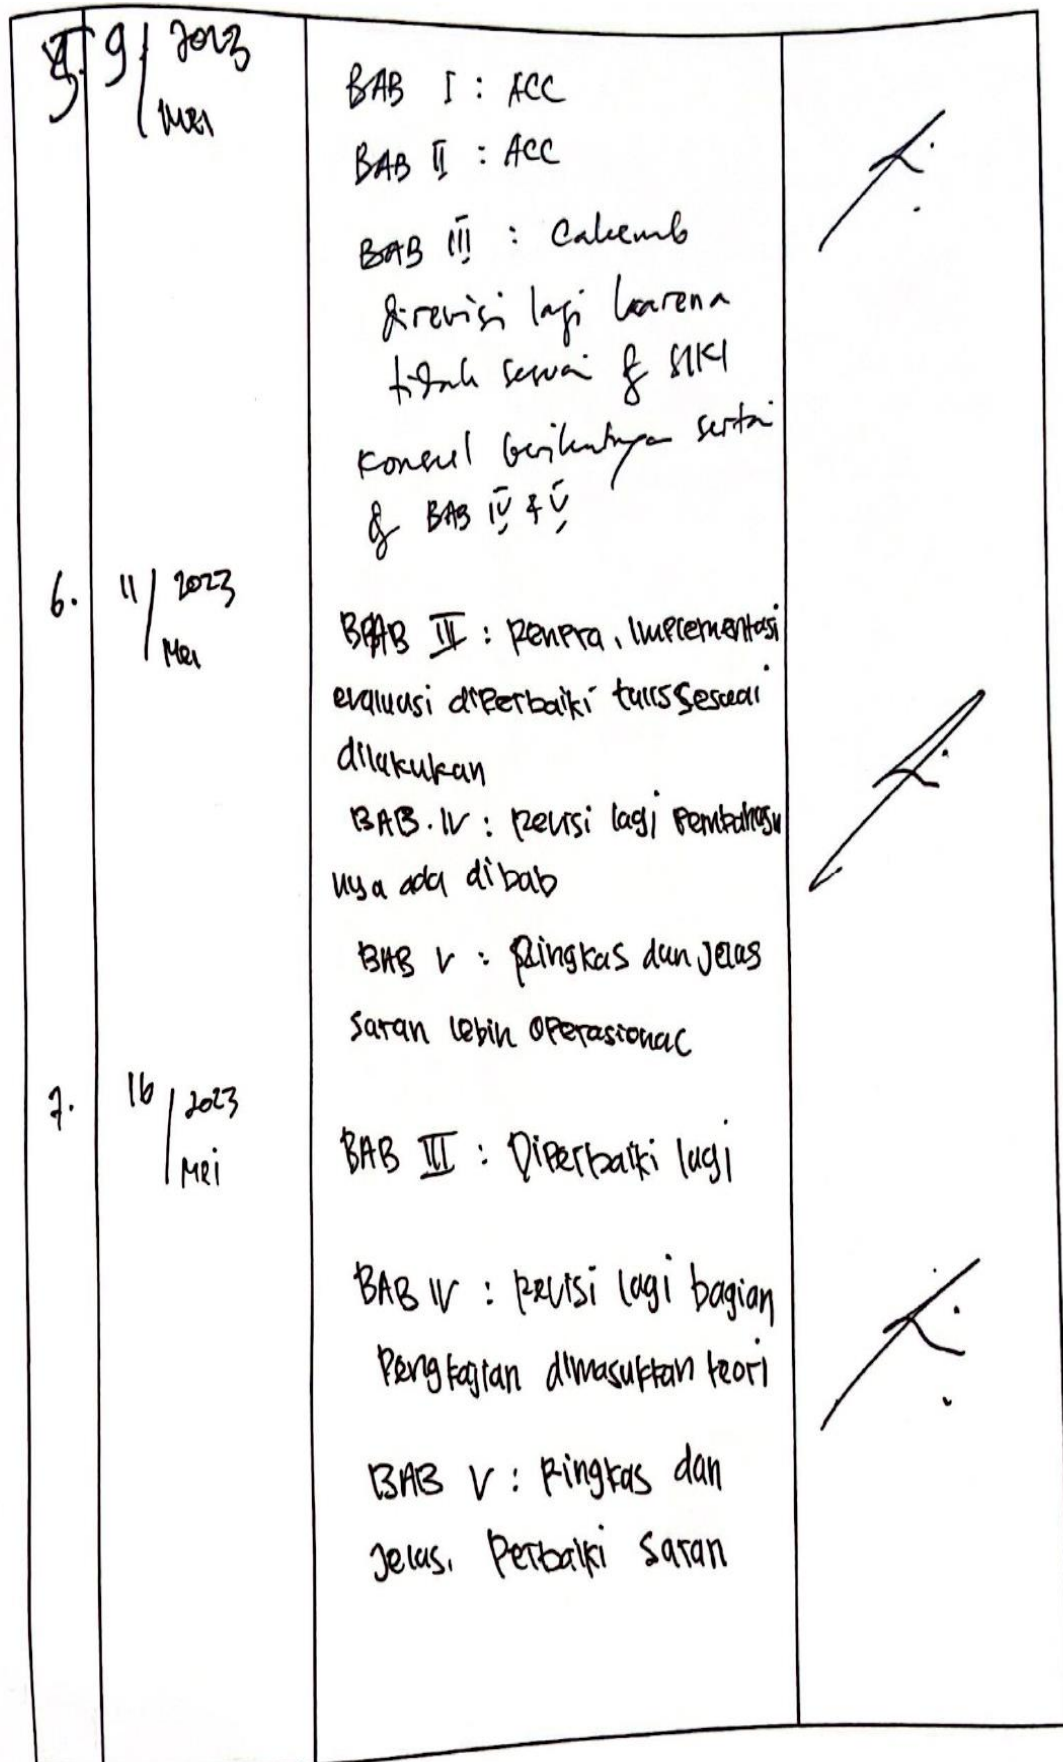 5. 9/2023
Mei
BAB I : ACC
BAB II : ACC
BAB III :
direvisi lagi karena
tidak sesuai SIKI
Konsul berikutnya sertai
BAB IV & V
6. 11/2023
Mei
BAB III : Renpra, Implementasi
evaluasi diperbaiki tulis sesuai
dilakukan
BAB. IV : Revisi lagi Pembahasa
nya ada dibab
BAB V : Ringkas dan Jelas
saran lebih operasional
7. 16/2023
Mei
BAB III : Diperbaiki lagi
BAB IV : Revisi lagi bagian
Pengkajian dimasukkan teori
BAB V : Ringkas dan
Jelas. Perbaiki saran